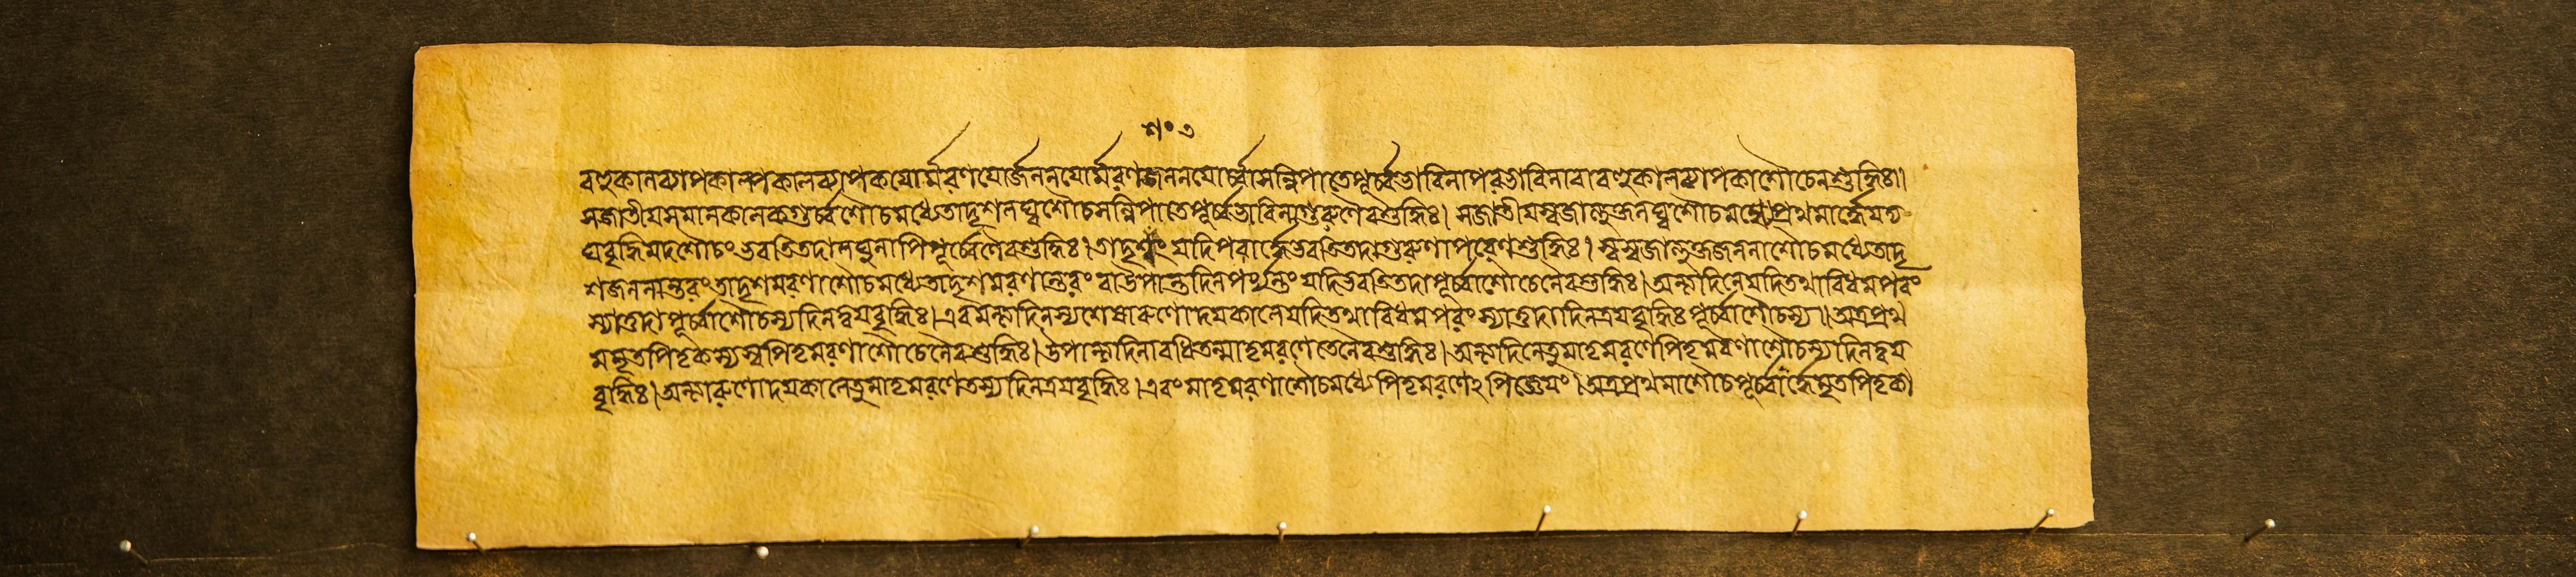 শং ৩
বহুকালব্যাপকাল্পকালব্যাপকয়োর্ম্মরণয়োর্জননয়োর্ম্মরণজননয়োর্ব্বাসন্নিপাতে পূর্ব্বভাবিনাপরভাবিনাবাবহুকালব্যাপকাশৌচেনশুদ্ধিঃ।।
সজাতীয়সমানকালকগুর্ব্বশৌচমধ্যেতাদৃশলঘ্বশৌচসন্নিপাতেপূর্ব্বভাবিনাগুরুণৈবশুদ্ধিঃ। সজাতীয়স্বজাত্যুক্তলঘ্বশৌচমধ্যে প্রথমার্দ্ধেযদ্য
ঘবৃদ্ধিমদশৌচং ভবতিতদালঘুনাপিপূর্ব্বেণৈবশুদ্ধিঃ। তাদৃশং যদিপরার্দ্ধেভবতিতদাগুরুণাপরেণশুদ্ধিঃ। স্বস্বজাত্যুক্তজননাশৌচমধ্যেতাদৃ
শজননান্তরংতাদৃশমরণাশৌচমধ্যেতাদৃশমরণান্তরং বাউপান্ত্যদিনপর্য্যন্তং যদিভবতিতদাপূর্ব্বাশৌচেনৈবশুদ্ধিঃ। অন্ত্যদিনেযদিতথাবিধমপরং
স্যাত্তদাপূর্ব্বাশৌচস্যদিনদ্বয়বৃদ্ধিঃ। এবমন্ত্যদিনস্যশেষারুণোদয়কালেযদিতথাবিধমপরংস্যাত্তদাদিনত্রয়বৃদ্ধিঃপূর্ব্বাশৌচস্য।। অত্রপ্রথ
মমৃতপিতৃকস্যস্বপিতৃমরণাশৌচেনৈবশুদ্ধিঃ। উপান্ত্যদিনাবধিতন্মাতৃমরণেতেনৈবশুদ্ধিঃ। অন্ত্যদিনেতুমাতৃমরণেপিতৃমরণাশৌচস্যদিনদ্বয়
বৃদ্ধিঃ। অন্ত্যারুণোদয়কালেতুমাতৃমরণেতস্যদিনত্রয়বৃদ্ধিঃ। এবং মাতৃমরণাশৌচমধ্যেপিতৃমরণেঽপিজ্ঞেয়ং। অত্রপ্রথমাশৌচপূর্ব্বার্দ্ধেমৃতপিতৃক